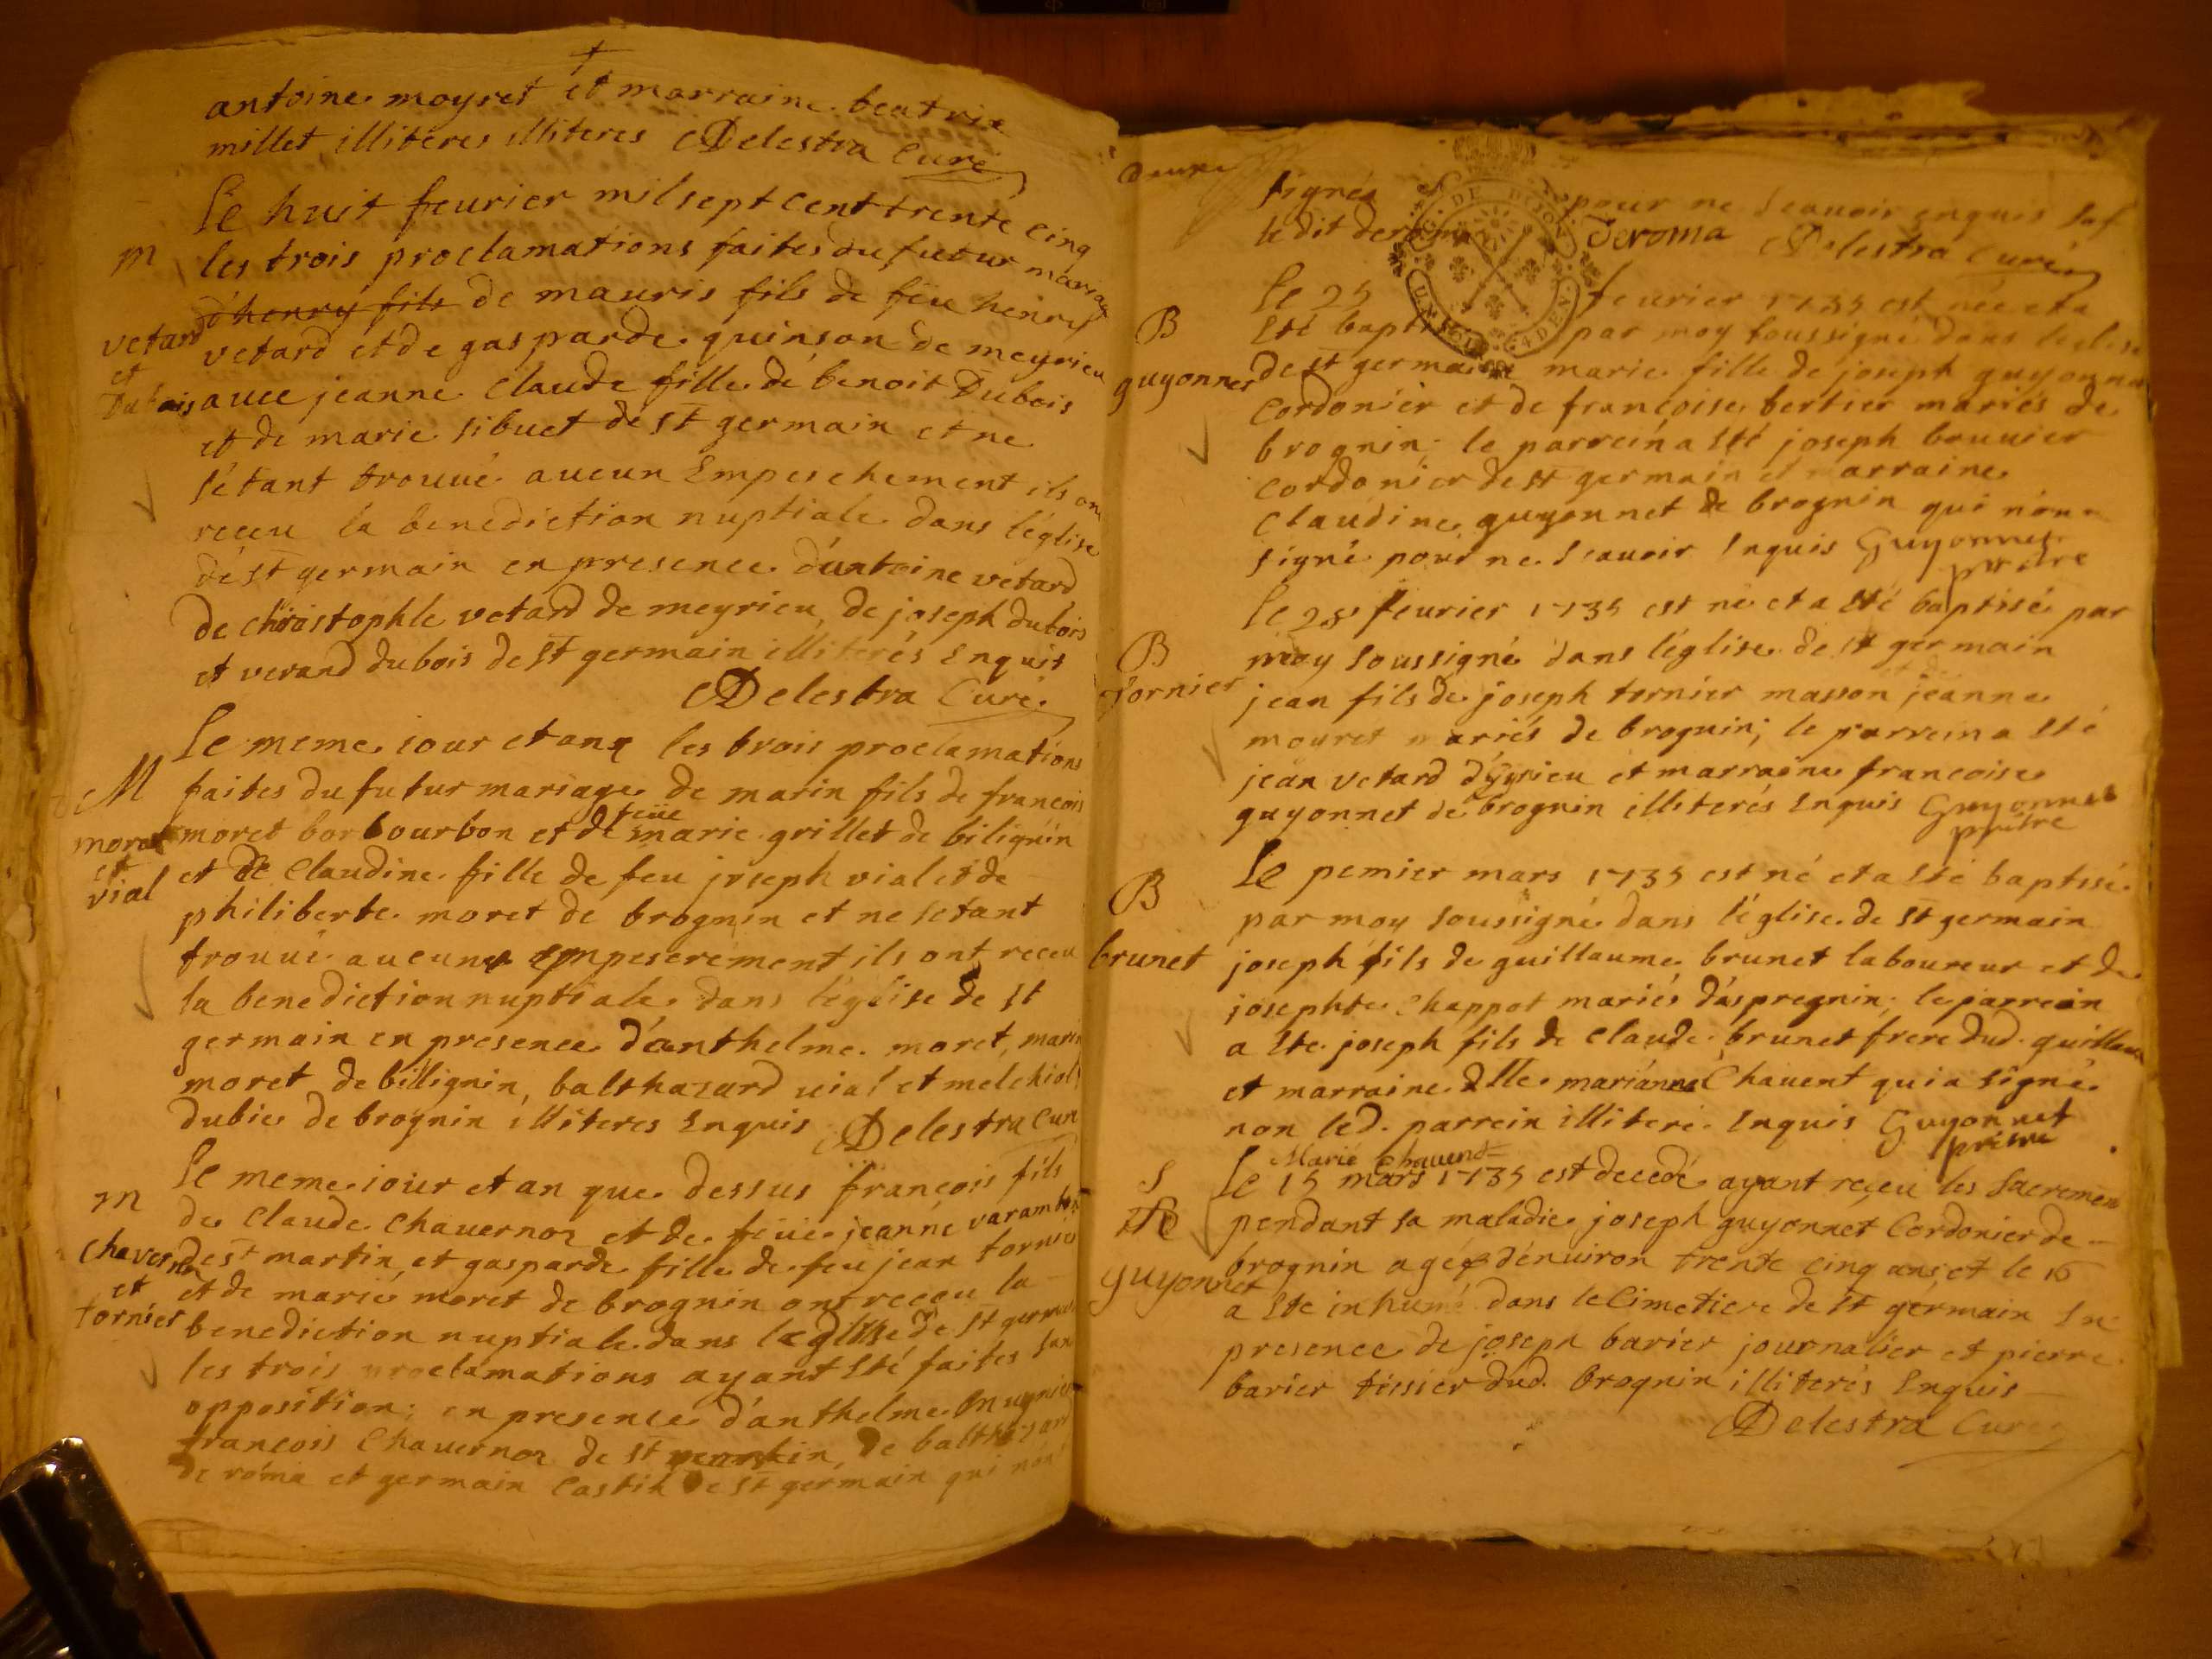 antoine moyret et marraine beatrix
millet illiteres illiteres Delestra Curé
Le huit feurier mil sept cent trente cinq
m
les trois proclamations faites du futur mariage
d'henry fils de mauris fils de feu henry
vetard
et
Dubois
vetard et de gasparde quinson de meyrieu
auec jeanne Claude fille de benoit Dubois
et de marie sibuet de st germain et ne
s'étant trouué aucun Empeschement ils ont
receu la benediction nuptiale dans l'église
de st germain en presence d'antoine vetard
de christophle vetard de meyrieu, de joseph dubois
et verand dubois de st germain illiterés Enquis
Delestra Curé
Le meme iour et an les trois proclamations
M
faites du futur mariage de marin fils de francois
moret
et
vial
moret bourbon et de feüe marie grillet de bilignin
et de Claudine fille de feu joseph vial et de
philiberte moret de brognin et ne setant
trouué aucune ils ont receu
la benediction nuptiale dans l'église de st
germain en presence d'anthelme moret, maris
moret de billignin, balthazard uial et melchiol
dubie de brognin illiteres Enquis Delestra Curé
Le meme iour et an que dessus françois fils
m
de Claude Chauernoz et de feüe jeanne varambon
Chavernoz
et
tornier
de st martin et gasparde fille de feu jean tornier
et de marie moret de brognin ont receu la
benediction nuptiale dans l'église de st germain
les trois proclamations ayant Eté faites sans
opposition; en presence d'anthelme Mugnier
francois Chauernoz de st de balthazard
de róma et germain Castin de st germain qui nont
signés pour ne scauoir enquis sof
le dit deroma Deroma Delestra Curé
B
guyonnet
Le 25 feurier 1735 est née et a
Eté baptisée par moy soussigné dans leglise
de st germain marie fille de joseph guyonnet
Cordonier et de françoise bertier mariés de
brognin; le parrein a Eté joseph bruuier
Cordonier de st germain et marraine
Claudine guyonnet de brognin qui nont
signé pour ne scauoir Enquis Guyonnet
prêtre
B
tornier
Le 28 feurier 1735 est né et a Eté baptisé par
moy soussigné dans l'église de st germain
jean fils de joseph tornier masson jeanne
mouret mariés de brognin; le parrein a Eté
jean vetard d'yzieu et marraine francoise
guyonnet de brognin illiterés Enquis Guyonnet
prêtre
B
brunet
Le pemier mars 1735 est né et a Eté baptisé
par moy soussigné dans l'église de st germain
joseph fils de guillaume brunet laboureur et de
josephte Chappot mariés d'aspregnin; le parrein
a Ete joseph fils de Claude brunet frere dud. guillaume
et marraine dlle marianne Chauent qui a signé
non led. parrein illiteré Enquis Guyonnet
prêtre
Marie Chauent
S
guyonnet
Le 15 mars 1735 est decedé ayant receu les Sacremen
pendant sa maladie joseph guyonnet Cordonier de
brognin agé d'enuiron trente cinq ans, et le 16
a Ete inhumé dans le Cimetiere de st germain En
presence de joseph barier journalier et pierre
barier tissier dud. brognin illiterés Enquis
Delestra Curé